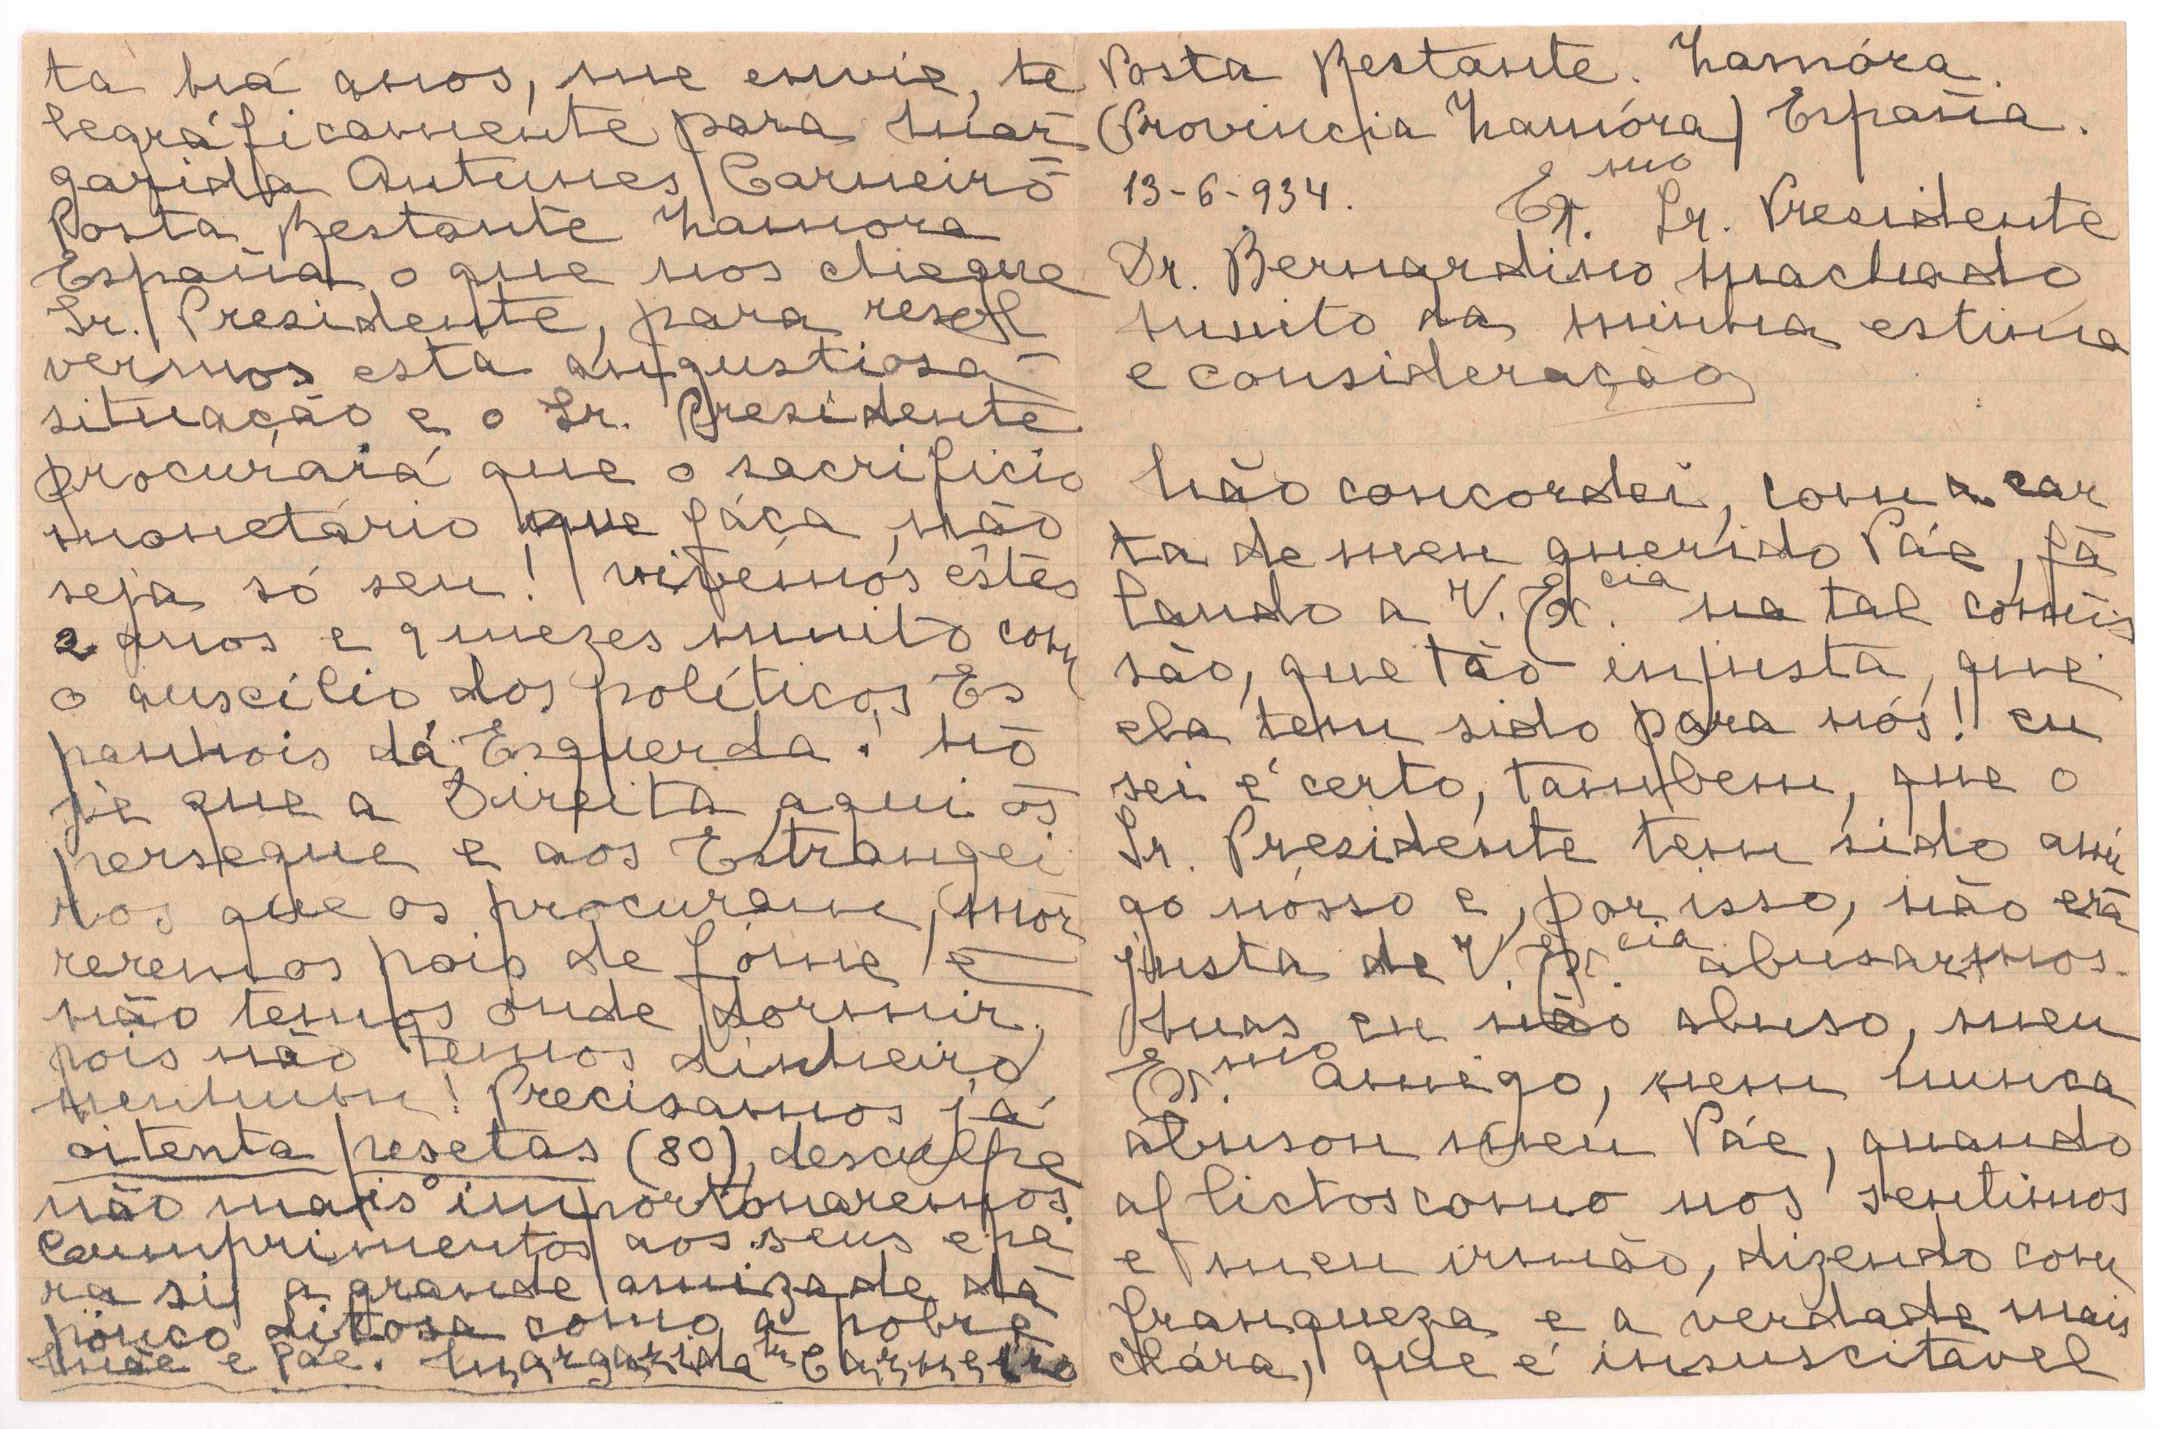 Posta Restante. Zamóra.
(Provincia Zamóra) España.
13-6-934. Ex.mo Sr. Presidente
Dr. Bernardino Machado
muito da minha estima
e consideração
Não concordei, com a car
ta de meu querido Páe, fa
lando a V. Ex.cia na tal comis
são, que tão injusta, que
ela tem sido para nós! eu
sei é certo, tambem, que o
Sr. Presidente tem sido ami
go nósso e, por isso, não era
justa de V. Ex.cia abusarmos.
Mas eu não abuso, meu
Ex.mo Amigo, nem nunca
abusou meu Páe, quando
aflictos como nos sentimos
e meu irmão, dizendo com
franqueza e a verdade mais
clára, que é insuscitavel
ta há anos, me envie, te
legráficamente para Mar
garida Antunes Carneiro
Posta Restante Zamora
España o que nos chegue
Sr. Presidente, para resol
vermos esta angustiosa
situação e o Sr. Presidente
procurará que o sacrificio
monetário que fáça, não
seja só seu! vivemos êstes
2 anos e 9 mezes muito com
o auscílio dos políticos Es
panhois dá Esquerda! Hô
je que a Direita aqui os
persegue e aos Estrangei
ros que os procuram, mor
reremos pois de fóme e
não temos onde dormir,
pois não temos dinheiro
nenhum! Precisamos já
oitenta pesetas (80), desculpe
não mais importonaremos.
Cumprimentos aos seus e pa
ra si, a grande amizade da
pouco ditosa como a pobre
Mãe e Páe. Margarida Carneiro